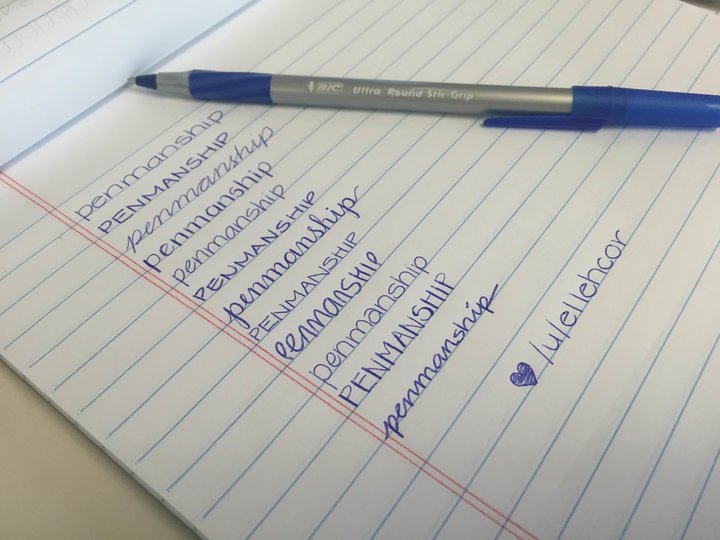 BIC Ultra Round Stic Grip
penmanship
PENMANSHIP
penmanship
penmanship
penmanship
PENMANSHIP
penmanship
PENMANSHIP
penmanship
penmanship
PENMANSHIP
penmanship
♥ /u/ellehcor